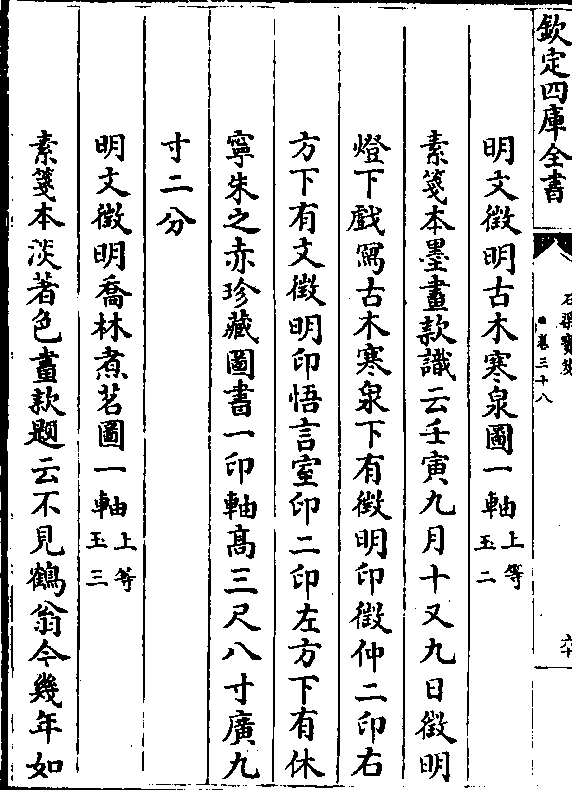 欽定四庫全書
石渠寶笈
卷三十八
六十
明文徵明古木寒泉圖一軸上等玉二
素箋本墨畫款識云壬寅九月十又九日徵明
燈下戲寫古木寒泉下有徵明印徵仲二印右
方下有文徵明印悟言室印二印左方下有休
寧朱之赤珍藏圖書一印軸高三尺八寸廣九
寸二分
明文徵明喬林煮茗圖一軸上等玉三
素箋本淡著色畫款題云不見鶴翁今幾年如